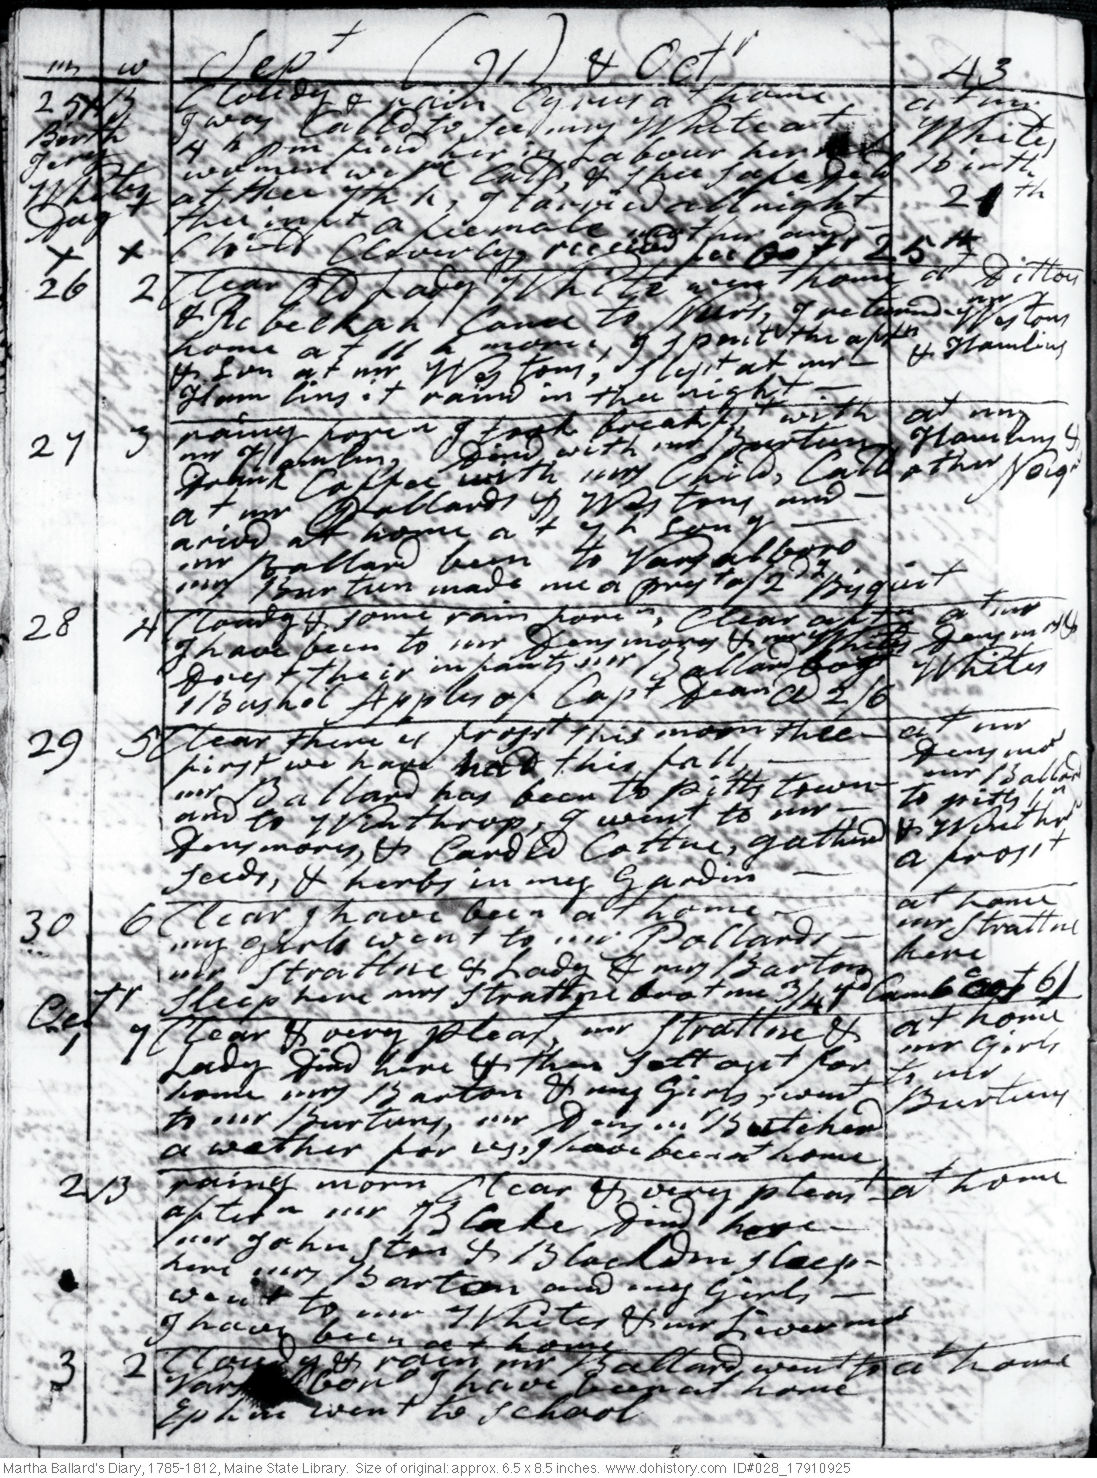 m w Sept (91) & Octr 43
25 B Cloudy & rain Cyrus at home at mr
Birth I was Calld to see mrs White at Whites
Jery 4 h pm find her in Labour her birth
Whites women were Calld, & shee safe Deld 21th
Dagt at thee 7th h, I tarried all night
thee inft a feemale mother and
x x Child Cleverly, received
26 2 Clear old Lady White went home at Dittoes
& Rebeckah Came to Nurs, I returned mr Westons
home at 11 h morn, I spent the aftn & Hamlins
& Son at mr Westons, slept at mr
Hamlins it raind in thee night
27 3 rainy foren I took breakft with at mr
mr Hamlin, Dind with mr Burtun Hamlins &
Drank Coffee with mrs Child, Calld other Neigr
at mr Pollards & Westons and
arivd at home at 7 h Evng
mr Ballard been to Varsalboro
mrs Burtun made me a prest of 2 Bisquit
28 4 Cloudy & some rain foren, Clear aftn at mr
I have been to mr Densmores & mr Whites Densmors &
Drest their infants mr Ballard bogt Whites
1 Bushel Apples of Capt Dean @ 2/6
29 5 Clear, there is frost this morn thee at mr
first we have had this fall, Densmors
mr Ballard has been to Pittstown mr Ballard
and to Winthrop, I went to mr to pitts tn
Densmores, & Carded Cottne, gatherd & Winthr
seeds, & herbs in my Gardin a frost
30 6 Clear, I have been at home at home
my girls went to mr Pollards mr Strattne
mr Strattne & Lady & mrs Barton here
sleep here mrs Strattne brot me 3/4 yd Camb Cost 6/
Octr
1 7 Clear & very pleast, mr Strattne & at home
Lady Dind here & then sett out for my Girls
home mrs Barton & my Girls went to mr
to mr Burtuns, mr Densmr Butcherd Burtuns
a weather for us, I have been at home
2 B rainy morn Clear & very pleast at home
aftern mr Blake Dind here
mr Johnston & Blackdon sleep
here mrs Barton and my Girls
went to mr Whites & mr Livermrs
I have been at home
3 2 Cloudy & rain mr Ballard went to at home
Varsalboro I have been at home
Ephm went to School
Martha Ballard's Diary, 1785-1812, Maine State Library. Size of original: approx. 6.5 x 8.5 inches. www.dohistory.com ID#028_17910925